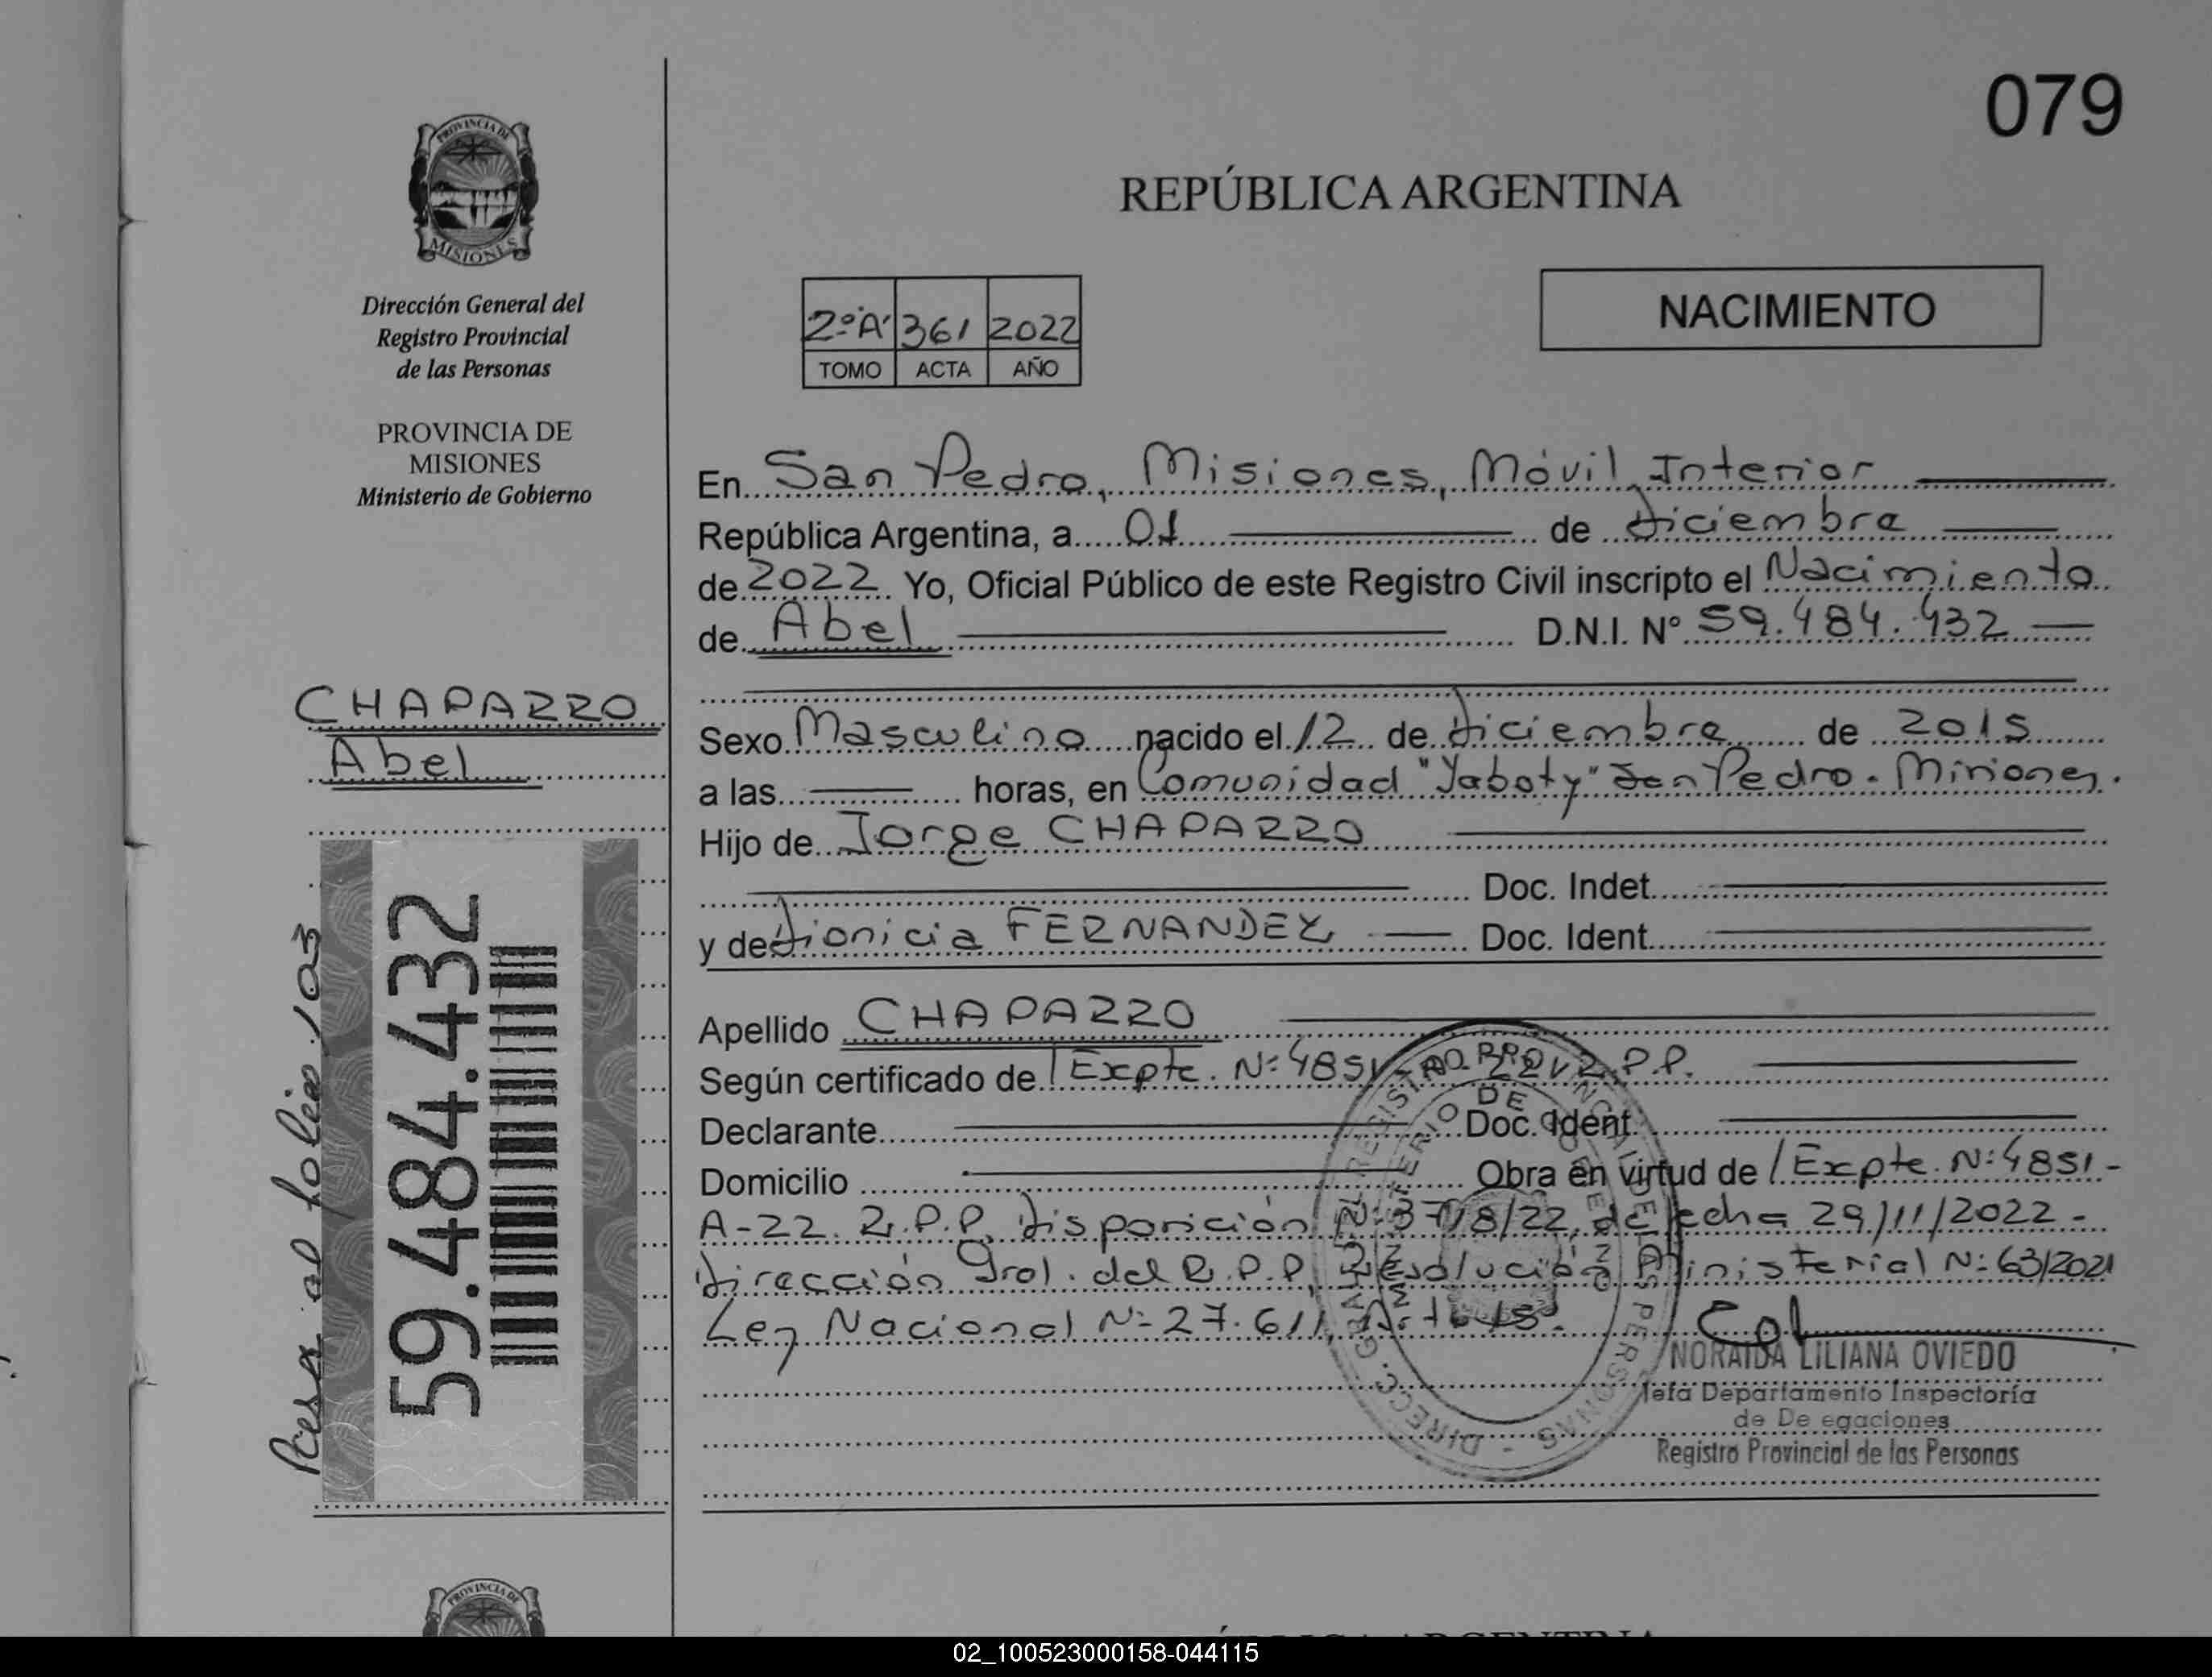 079
PROVINCIA DE
MISIONES
Dirección General del
Registro Provincial
de las Personas
PROVINCIA DE
MISIONES
Ministerio de Gobierno
REPÚBLICA ARGENTINA
2ºA 361 2022
TOMO ACTA AÑO
NACIMIENTO
En San Pedro, Misiones, Móvil Interior
República Argentina, a 01 de diciembre
de 2022 Yo, Oficial Público de este Registro Civil inscripto el Nacimiento
de Abel D.N.I. Nº 59.484.432
Sexo Masculino nacido el 12 de diciembre de 2015
a las horas, en Comunidad "Yaboty" San Pedro. Misiones.
Hijo de Jorge CHAPARRO
Doc. Indet.
y de Dionicia FERNANDEZ Doc. Ident.
Apellido CHAPARRO
Según certificado de Expte. Nº 4851- R.P.P.
Declarante Doc. Ident.
Domicilio Obra en virtud de Expte. Nº 4851-
A-22 R.P.P. Disposición Nº 3718/22, de fecha 29/11/2022-
Dirección Gral. del R.P.P, Resolución Ministerial Nº 63/2021
Ley Nacional Nº 27.611,
NORAIDA LILIANA OVIEDO
Jefa Departamento Inspectoría
de De egaciones
Registro Provincial de las Personas
CHAPARRO
Abel
59.484.432
Pasa al folio 103
PROVINCIA DE
02_100523000158-044115